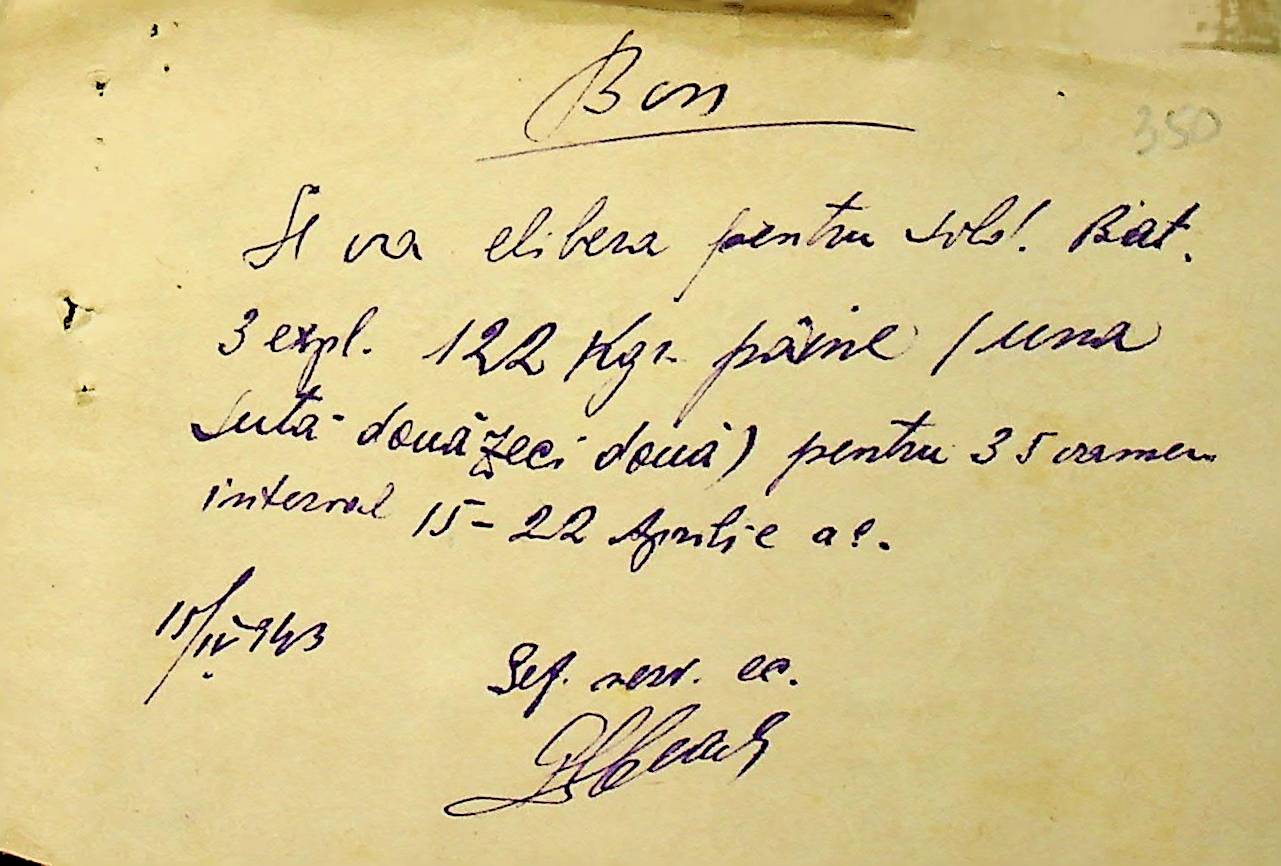 Bon
350
Se va elibera pentru sold. Bat.
3 expl. 122 Kgr. pâine (una
sută douăzeci două) pentru 35 oameni
interval 15-22 Aprilie a.c.
15/IV 943
Șef. serv. ec.